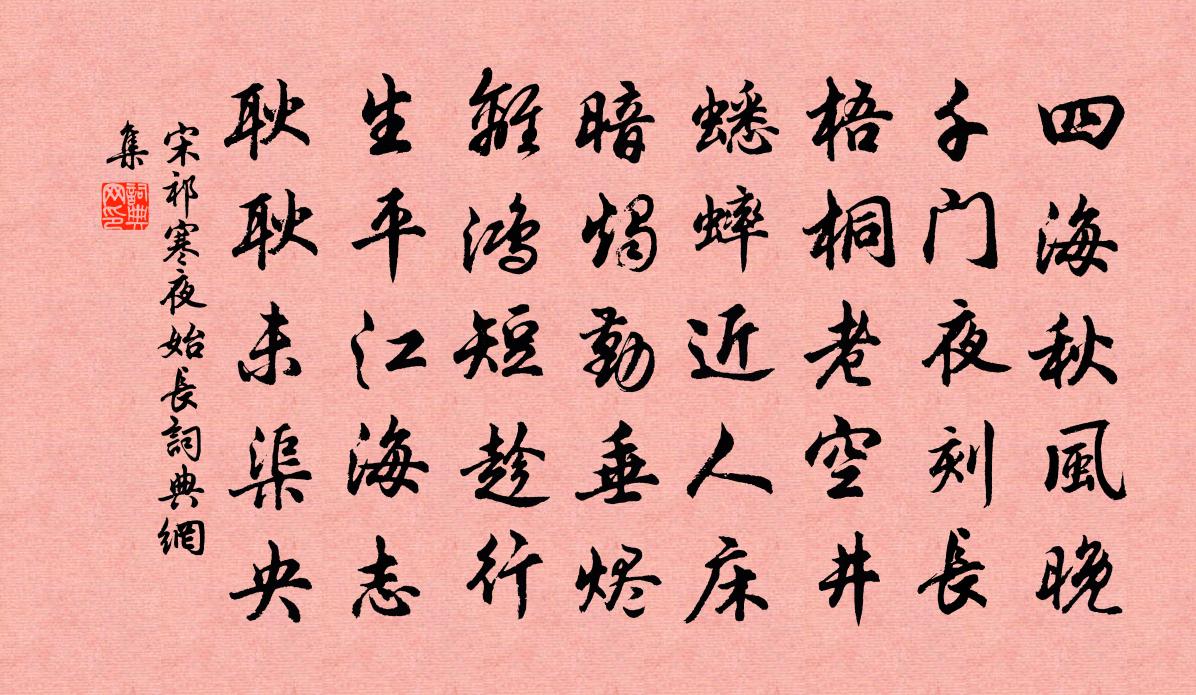 四海秋風晚
千门夜刻長
梧桐老空井
蟋蟀近人床
暗燭勤垂烬
離鸿短趁行
生平江海志
耿耿未渠央
宋祁寒夜始長詞典網
集
詞典网印